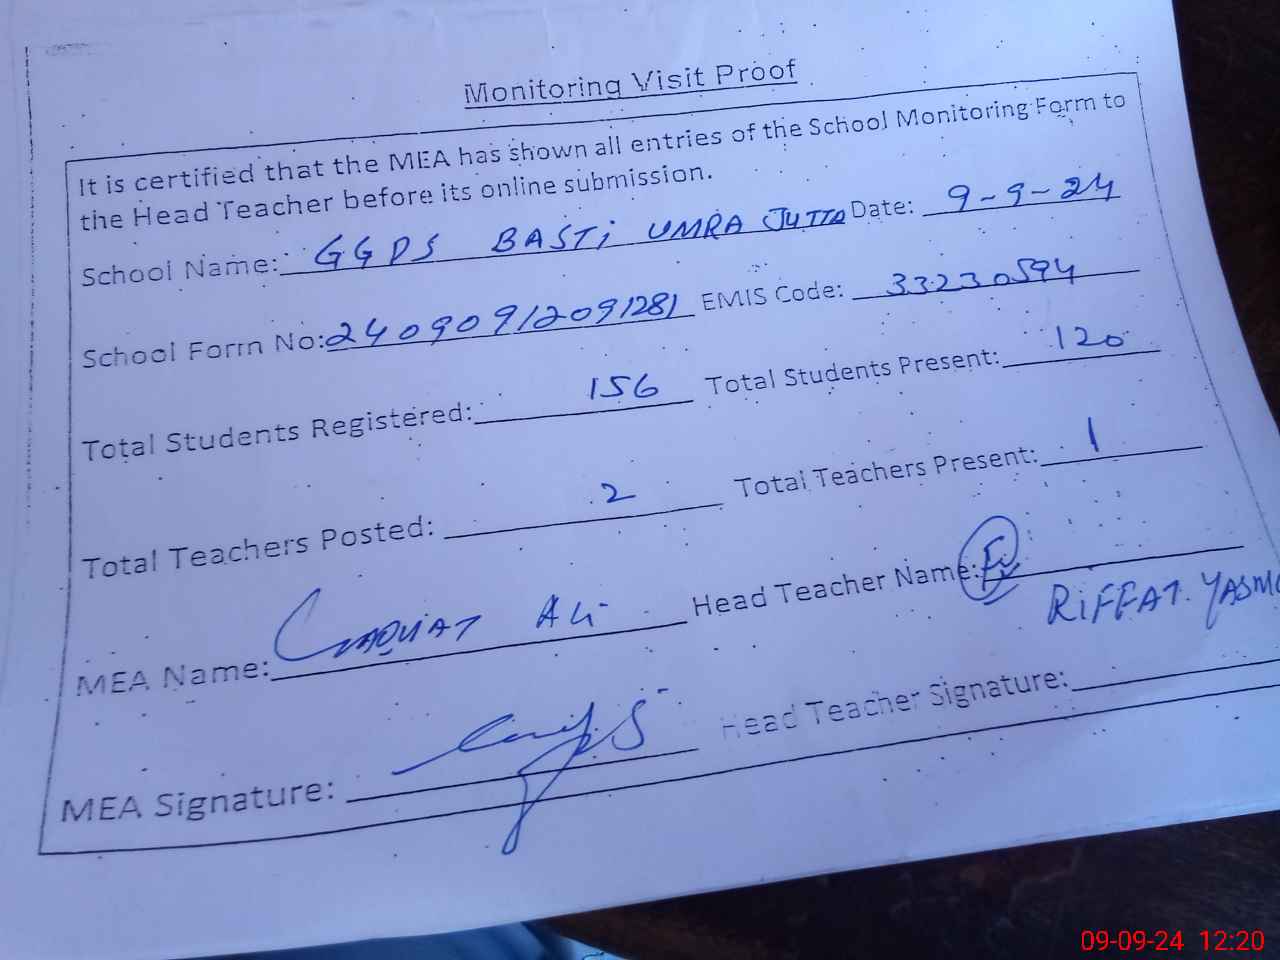 Monitoring Visit Proof
It is certified that the MEA has shown all entries of the School Monitoring Form to
the Head Teacher before its online submission.
School Name: GGPS BASTI UMRA JUTTA Date: 9-9-24
School Form No: 24090912091281 EMIS Code: 33230594
Total Students Registered: 156 Total Students Present: 120
Total Teachers Posted: 2 Total Teachers Present: 1
MEA Name: LIAQUAT ALI Head Teacher Name:
RIFFAT YASM
MEA Signature: Head Teacher Signature:
09-09-24 12:20